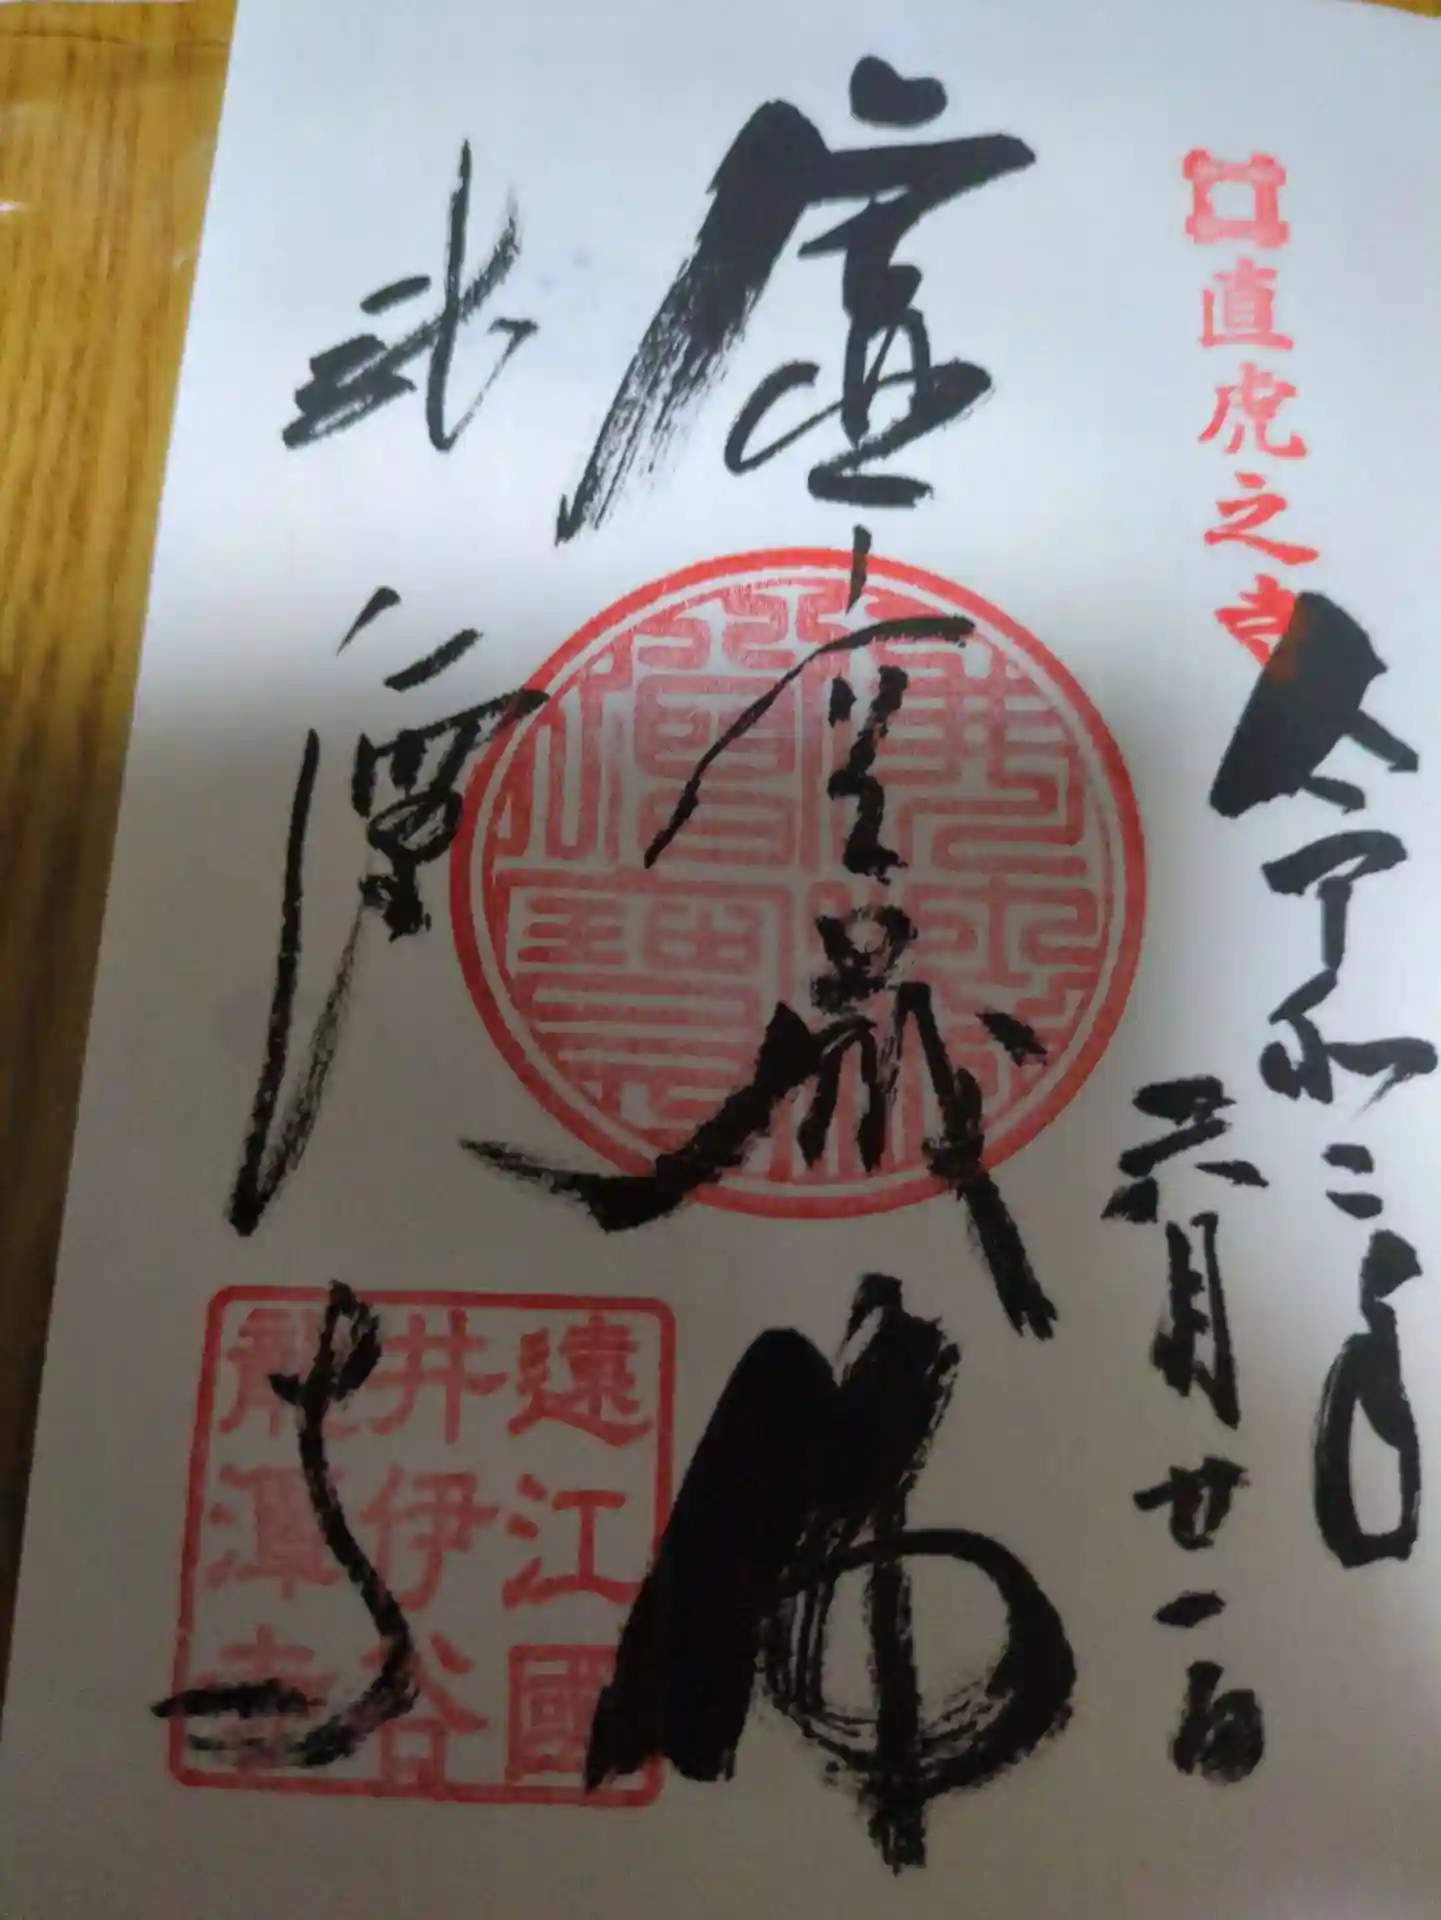 直虎之寺
令和二年
六月廿一日
虚空蔵佛
佛法僧寶
龍潭寺
遠江國
井伊谷
龍潭寺